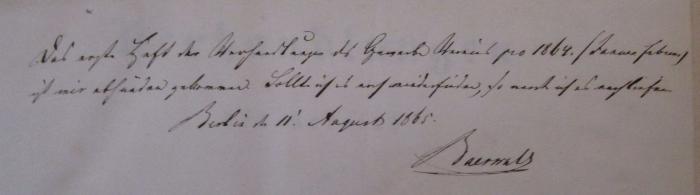 Das erste Heft der Verhandlungen des Gewerbe Vereins pro 1864. (Januar Februar)
ist mir abhanden gekommen. Sollte ich es noch wiederfinden, so werde ich es nachliefern
Berlin den 11t August 1865.
Baerwald